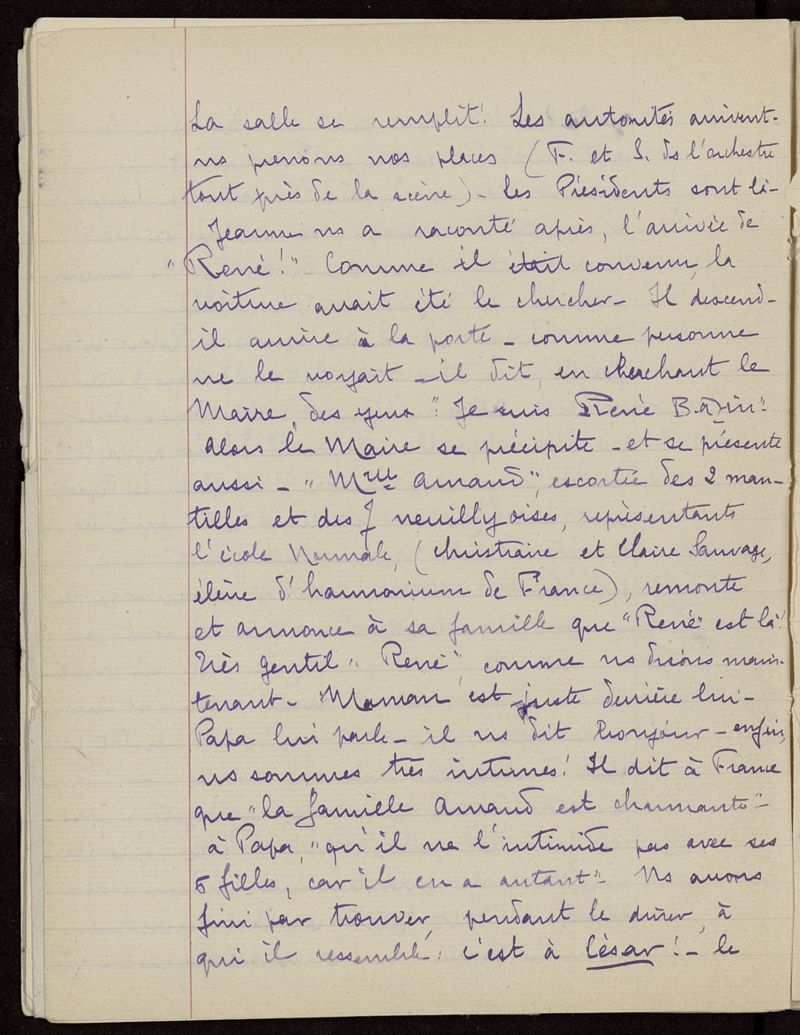 La salle se remplit! Les autorités arrivent-
ns prenons nos places (F. et S. ds l'orchestre
tout près de la scène)- les Présidents sont là-
Jeanne ns a raconté après, l'arrivée de
"René!" Comme il était convenu, la
voiture avait été le chercher- Il descend-
il arrive à la porte - comme personne
ne le voyait - il dit, en cherchant le
Maire, des yeux "Je suis René Bazin"
alors le Maire se précipite - et se présente
aussi - "Melle Amand", escortée des 2 man-
tilles et des neuillyoises, représentants
l'école Normale, (Christiane et Claire Sauvage,
élève d'harmonium de France), remonte
et annonce à sa famille que "René" est là!
Très gentil "René", comme ns disons main-
tenant- Maman est juste derrière lui-
Papa lui parle - il ns dit bonjour - enfin,
ns sommes très intimes! Il dit à France
que "la famille Amand est charmante"-
à Papa, "qu'il ne l'intimide pas avec ses
6 filles, car il en a autant"- Ns avons
fini par trouver, pendant le dîner, à
qui il ressemble: c'est à César! - le